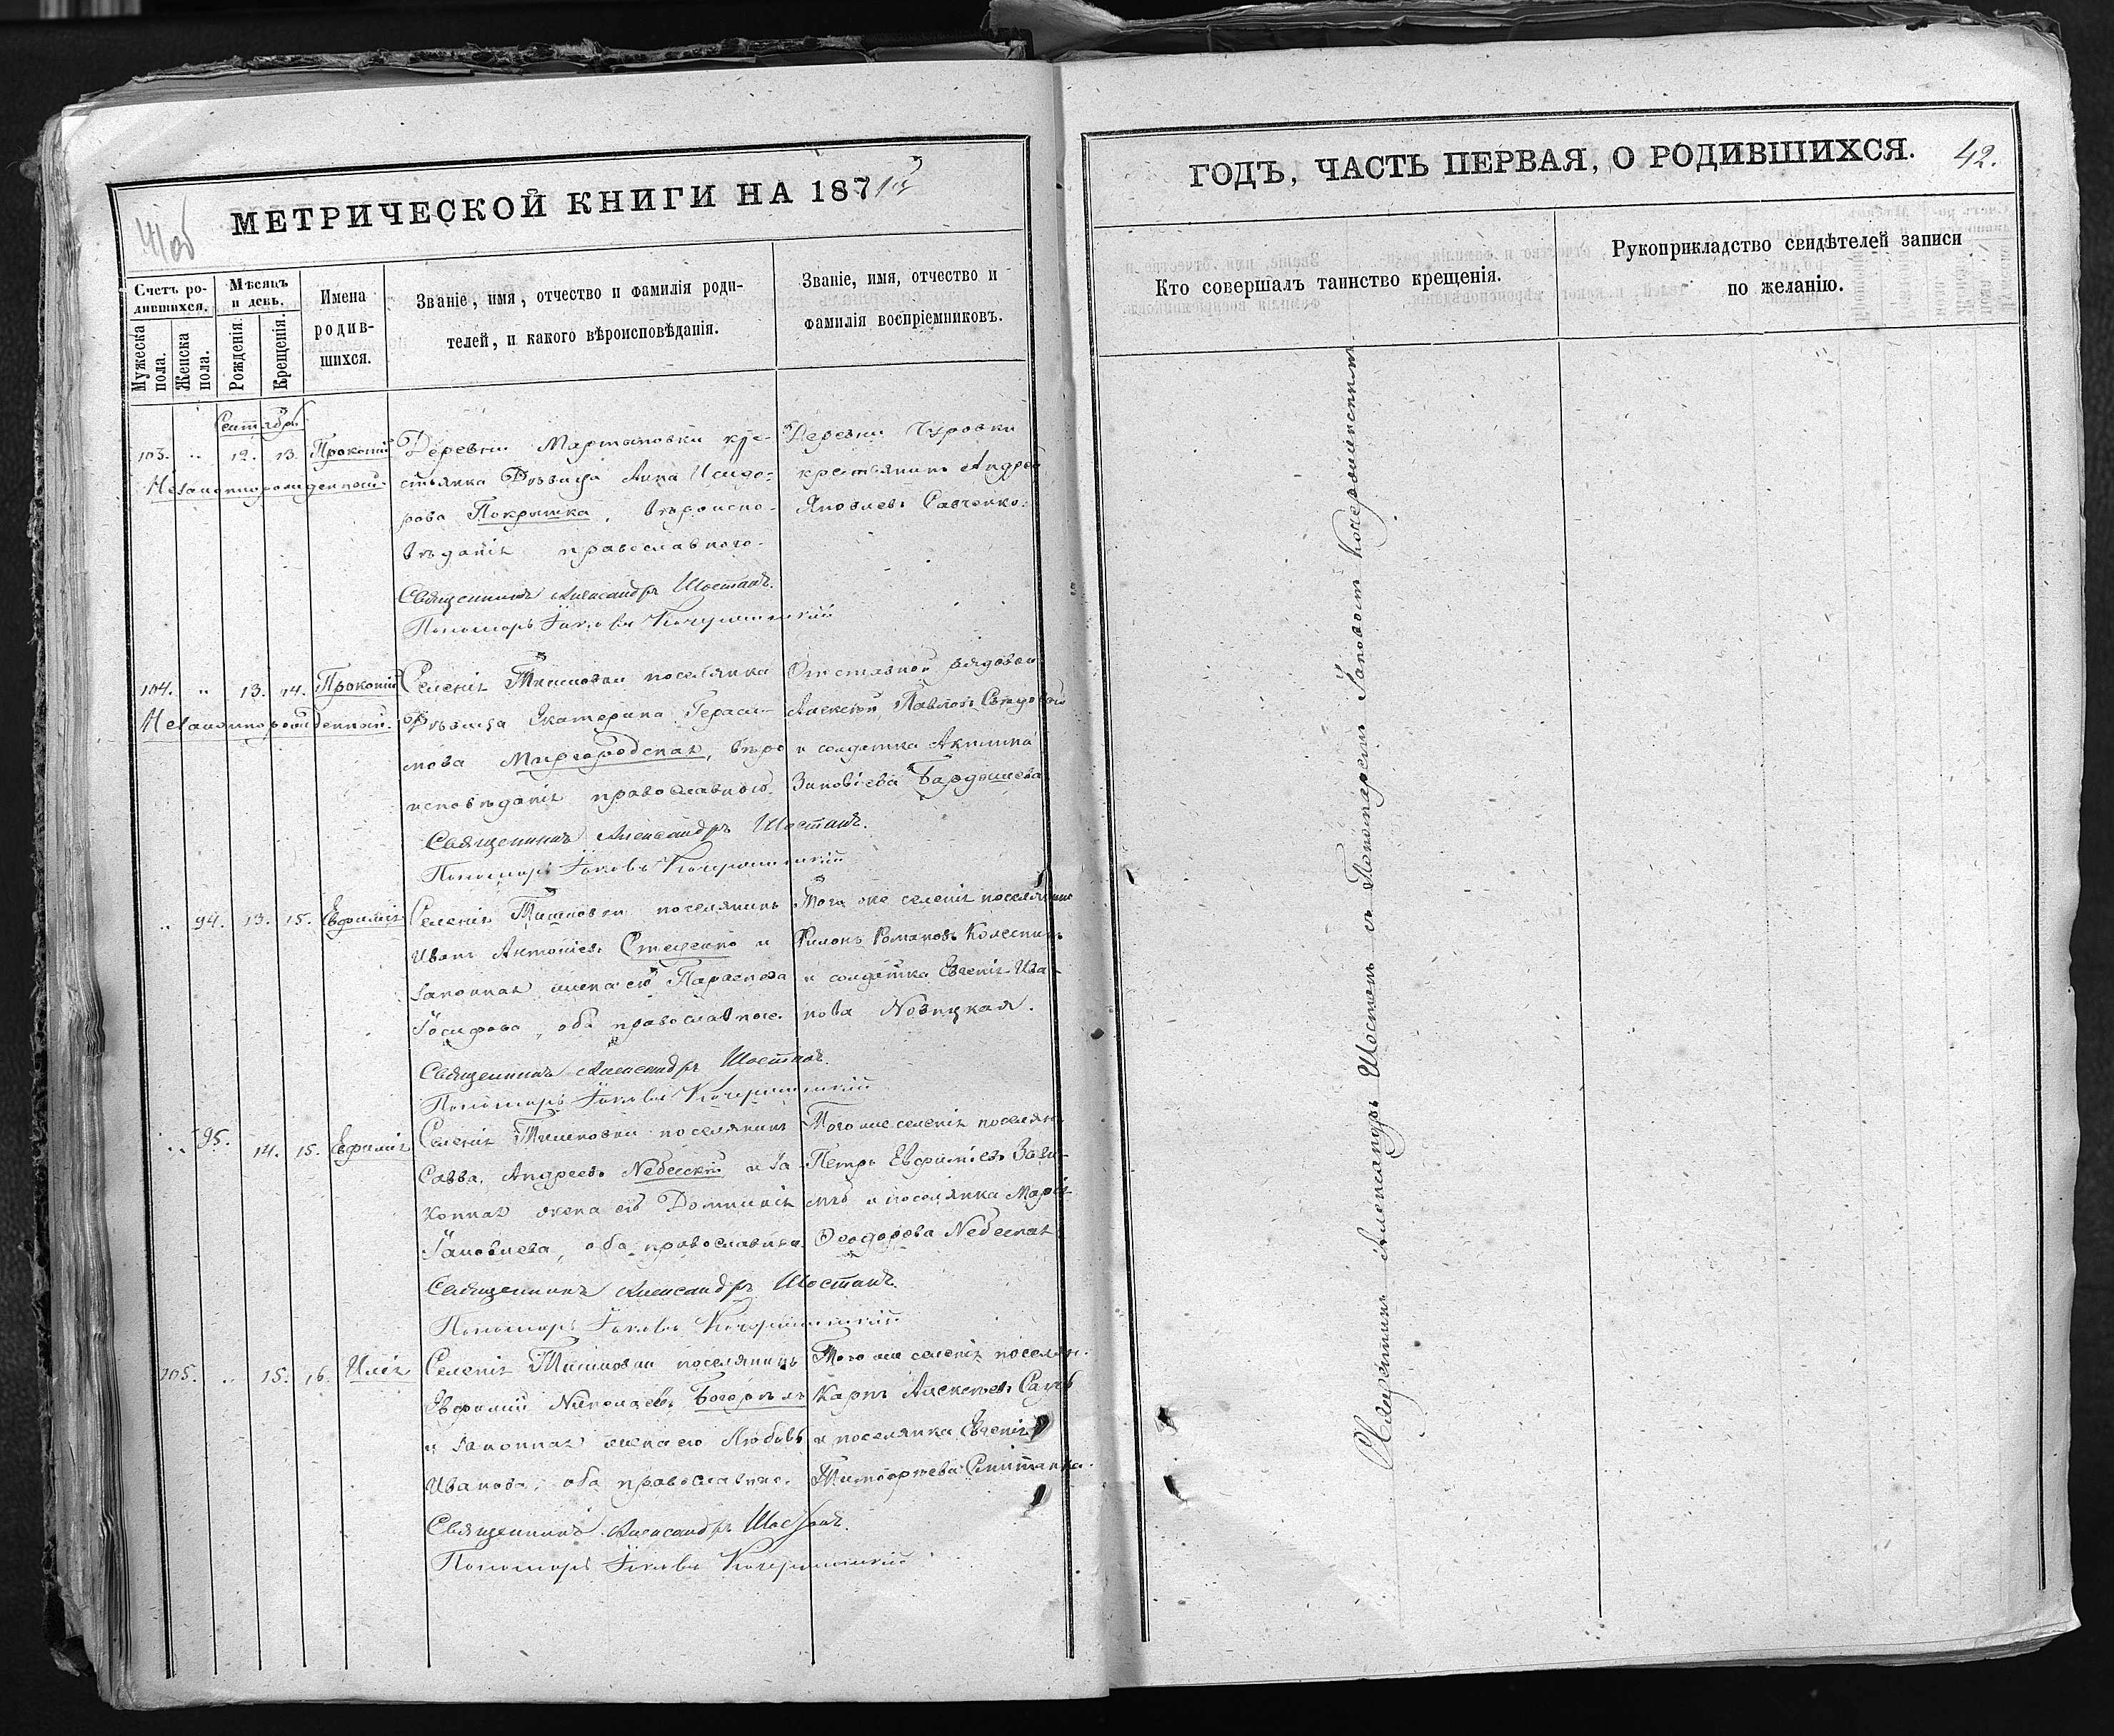 МЕТРИЧЕСКОЙ КНИГИ НА 187
Счетъ ро-
дившихся.
Мужеска
пола.
Женска
пола.
Мѣсяцъ
и день.
Рожденія.
Крещенія.
Имена
родив-
шихся.
Званіе, имя, отчество и фамилія роди-
телей, и какого вѣроисповѣданія.
Званіе, имя, отчество и
фамилія воспріемниковъ.
103. " 12. 13. Прокопій
Незаконнорожденный.
Деревни Мартыновки кре-
стьянка Дѣвица Анна Исидо-
рова Покрышка, вѣроиспо-
вѣданія православнаго.
Деревни Чуровки
крестьянинъ Андрей
Яковлевъ Савченко.
Священникъ Александръ Шостакъ.
Пономарь Іаковъ
104. " 13. 14. Прокопій
Незаконнорожденный.
Селенія Тишковки поселянка
Дѣвица Екатерина Гераси-
мова Миргородская, вѣро
исповѣданія православнаго.
Отставной рядовой
Алексѣй Павловъ
и солдатка Акилина
Зиновіева
Священникъ Александръ Шостакъ.
Пономарь Іаковъ
" 94. 13. 15. Евфимія
Селенія Тишковки поселянинъ
Иванъ Антоніевъ Стеценко и
законная жена его Параскева
Іосифова, оба православные.
Того же селенія поселянинъ
Филонъ Романовъ Колесникъ
и солдатка Евгенія Ива-
нова Новицкая.
Священникъ Александръ Шостакъ.
Пономарь Іаковъ
" 95. 14. 15. Евфимія
Селенія Тишковки поселянинъ
Савва Андреевъ Небесскій и за-
конная жена его Домникія
Іаковлева, оба православны.
Того же селенія поселян.
Петръ Евфиміевъ
и поселянка Марія
Ѳеодорова Небеская
Священникъ Александръ Шостакъ.
Пономарь Іаковъ
105. " 15. 16. Илія
Селенія Тишковки поселянинъ
Евфимій Николаевъ
и законная жена его Любовь
Иванова, оба православные.
Того же селенія поселян.
Карпъ Алексѣевъ
и поселянка Евгенія
Тимоѳеева
Священникъ Александръ Шостакъ.
Пономарь Іаковъ
ГОДЪ, ЧАСТЬ ПЕРВАЯ, О РОДИВШИХСЯ.
42.
Кто совершалъ таинство крещенія.
Рукоприкладство свидѣтелей записи
по желанію.
Священникъ Александръ Шостакъ съ Пономаремъ Іаковомъ